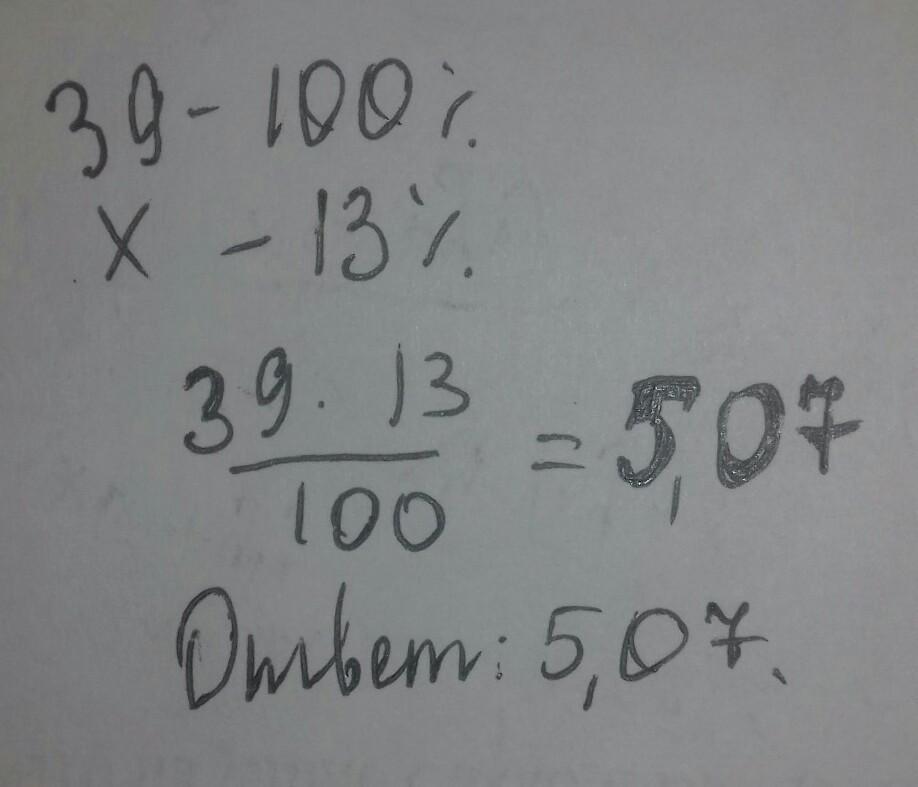 39 - 100%
x - 13%
39 · 13
100
= 5,07
Ответ: 5,07.